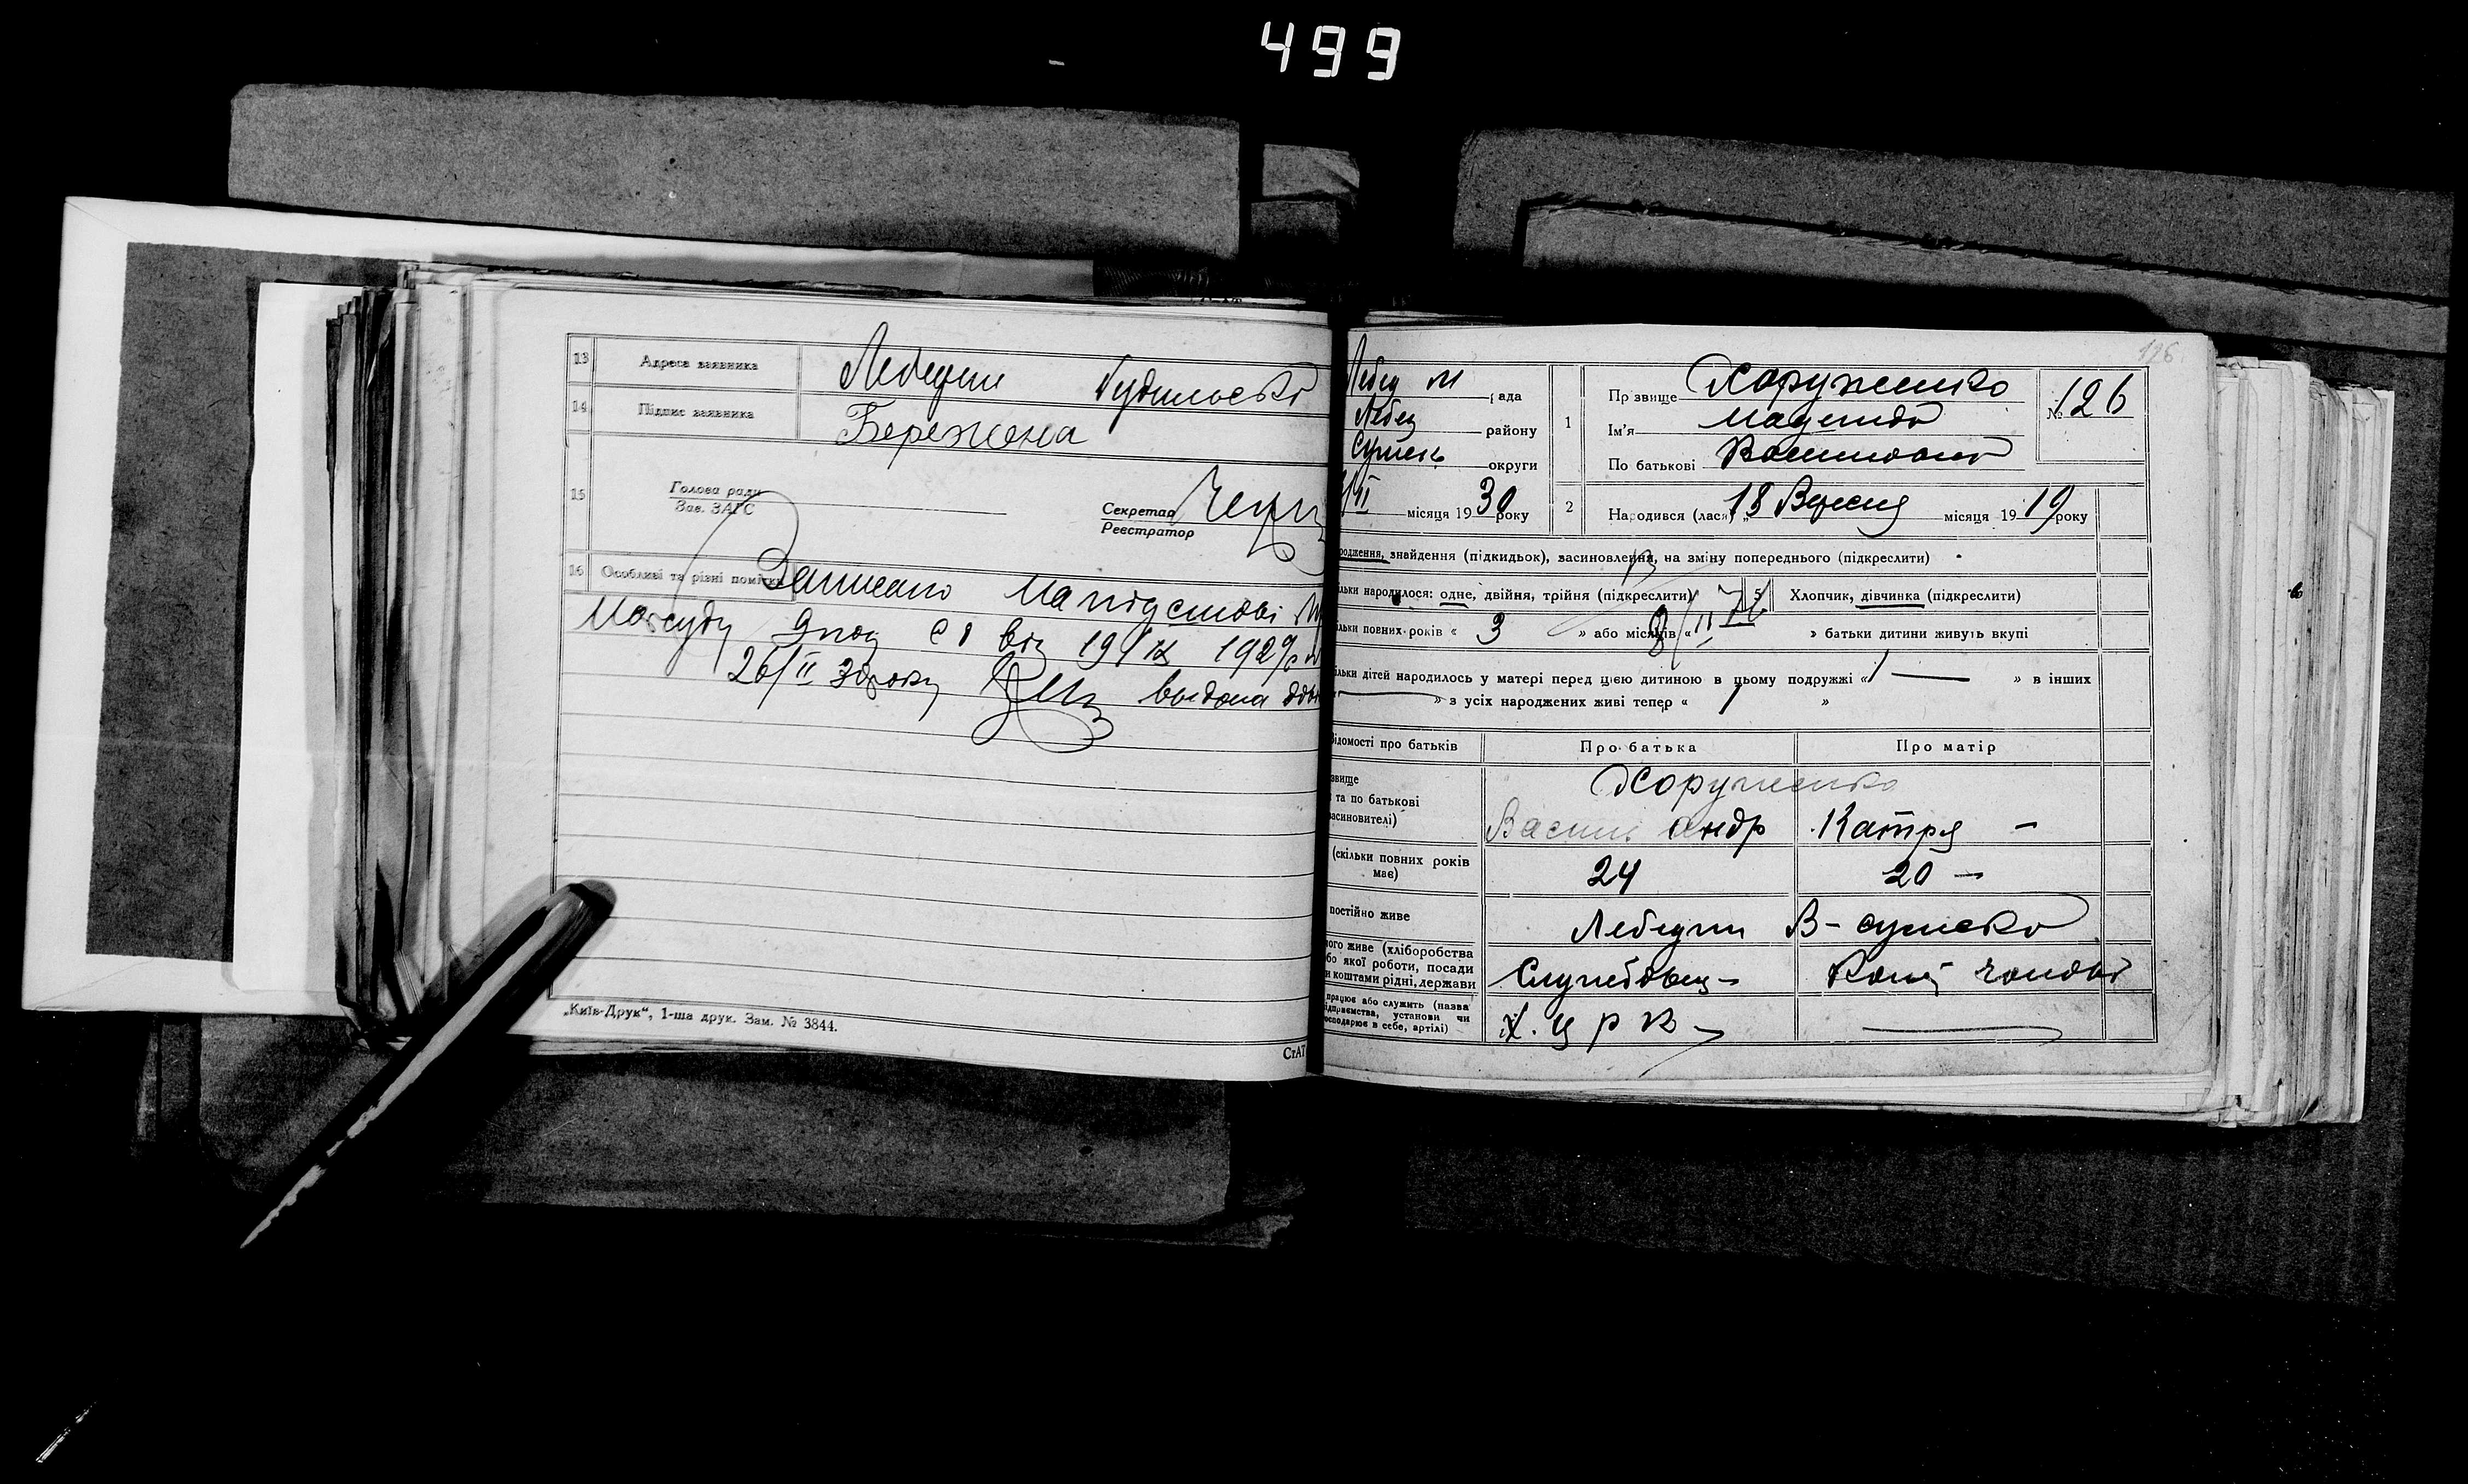 499
13 Адреса заявника Лебедин Будильсько
14 Підпис заявника Бережона
15 Голова ради
Зав. ЗАГС
Секретар
Реєстратор
16 Особливі та різні помітки Записано на підстові
Морсуду від 19/IX 1929р
26/II 30року видана
„Київ-Друк“, 1-ша друк. Зам. № 3844.
СтАТ
126
Лебед м рада
Лебед району
Сумськ округи
місяця 1930 року
1 Прізвище Хоруженко
Ім'я Магдинда
По батькові Васильовна
№ 126
2 Народився (лася) „18 Вересня місяця 1919 року
родження, знайдення (підкидьок), засиновлення, на зміну попереднього (підкреслити)
льки народилося: одне, двійня, трійня (підкреслити) 5 Хлопчик, дівчинка (підкреслити)
льки повних років « 3 » або місяців « » батьки дитини живуть вкупі
8/II 76
льки дітей народилось у матері перед цією дитиною в цьому подружжі « 1 — » в інших
— » з усіх народжених живі тепер « 1 »
ідомості про батьків Про батька Про матір
звище Хоруженко
та по батькові
засиновителі) Васил Андр Катря —
(скільки повних років
має) 24 20 —
постійно живе Лебедин В-сумсько
ого живе (хліборобства
бо якої роботи, посади
и коштами рідні, держави Службовец —
працює або служить (назва
ідприємства, установи чи
осподарює в себе, артілі) Х. ц р к —